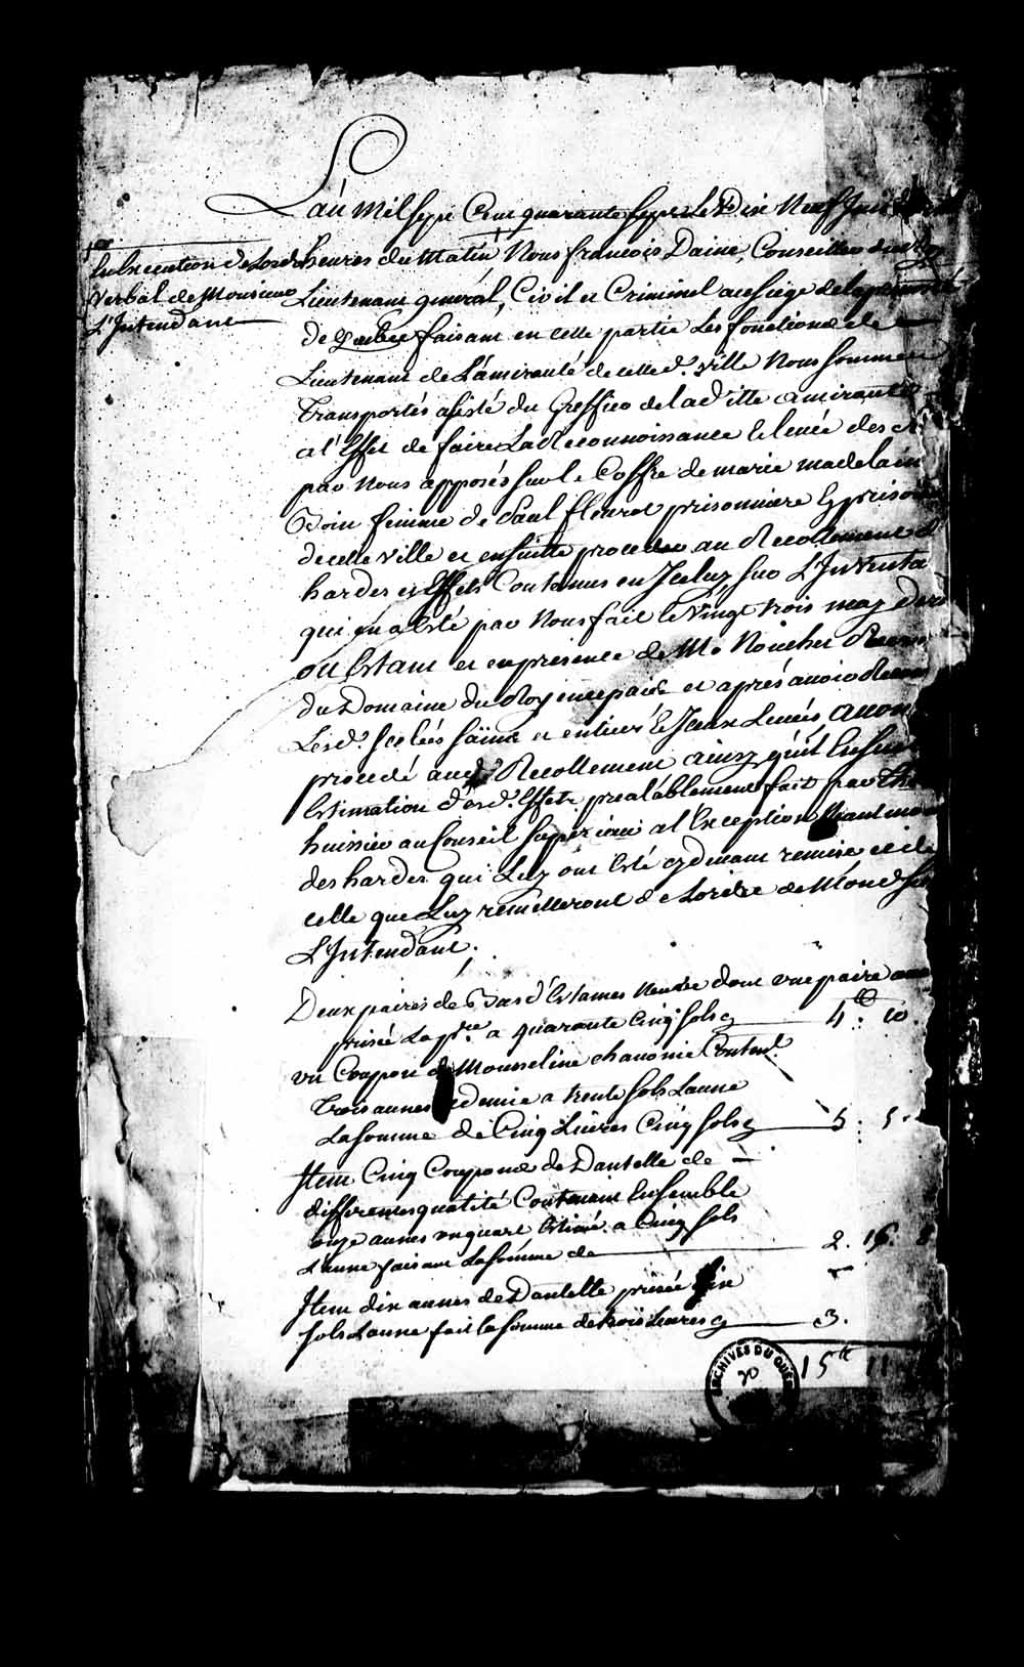 L'an mil sept Cent quarante sept Le Dix Neuf
En Execution de Lordre
Verbal de Monsieur
L'Intendant
heures du Matin Nous françois Daine, Conseiller du
Lieutenant general, Civil et Criminel au siege de la prevosté
de Quebec faisant en cette partie Les fonctions de
Lieutenant de L'amirauté de cette d. ville Nous sommes
Transportés assisté du Greffier de la d itte amirauté
a l'Effet de faire La Reconnoissance & levée des
par Nous apposés sur le Coffre de marie madelain
femme de paul prisonniere Es prisons
de cette ville et ensuitte proceder au Recollement
hardes et Effets Contenus en Iceluy, sur L'Inventa
qui en a esté par Nous fait le vingt trois may
ou Estant et en presence de Mr
du Domaine du Roy en ce païs et aprés avoir
Lesd. scelés sains et entiers & Iceux Levés, avons
procedé aud. Recollement ainsy qu'il Ensuit
Estimation desd. Effets prealablement fait par
huissier au Conseil superieur a l Exception
des hardes qui Luy ont Esté cydevant remise et de
celle que Luy remetteront de Lordre de Mond
L'Intendant;
Deux paires de Bas d'Estames dont une paire
prisée La pre. a quarante Cinq sols 4tt: 10
un Coupon de Mousseline Conten.t
Trois aunes et demie a trente sols Laune
La somme de Cinq Livres Cinq sols 5: 5
Item Cinq Coupons de Dantelle de
differentes qualité Contenant Ensemble
onze aunes un quart Estimé a Cinq sols
L'aune faisant La somme de 2. 16.
Item dix aunes de Dantelle prisée six
sols Laune fait la somme de trois Livres 3.
ARCHIVES DU QUÉBEC
15tt 11